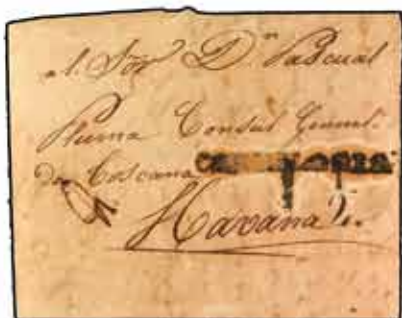 al. Sor. Dn Pascual
Pluma Consul General.
de Toscana
Havana 2.